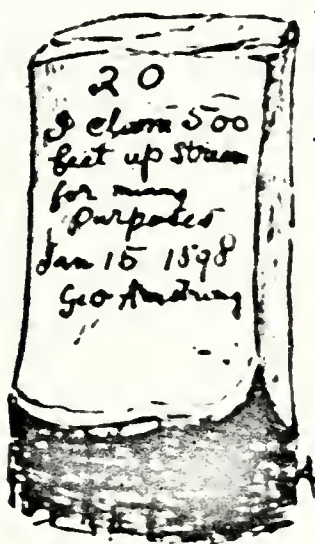 20
I claim 500
feet up Stream
for mining
purposes
Jan 15 1898
Geo Armstrong